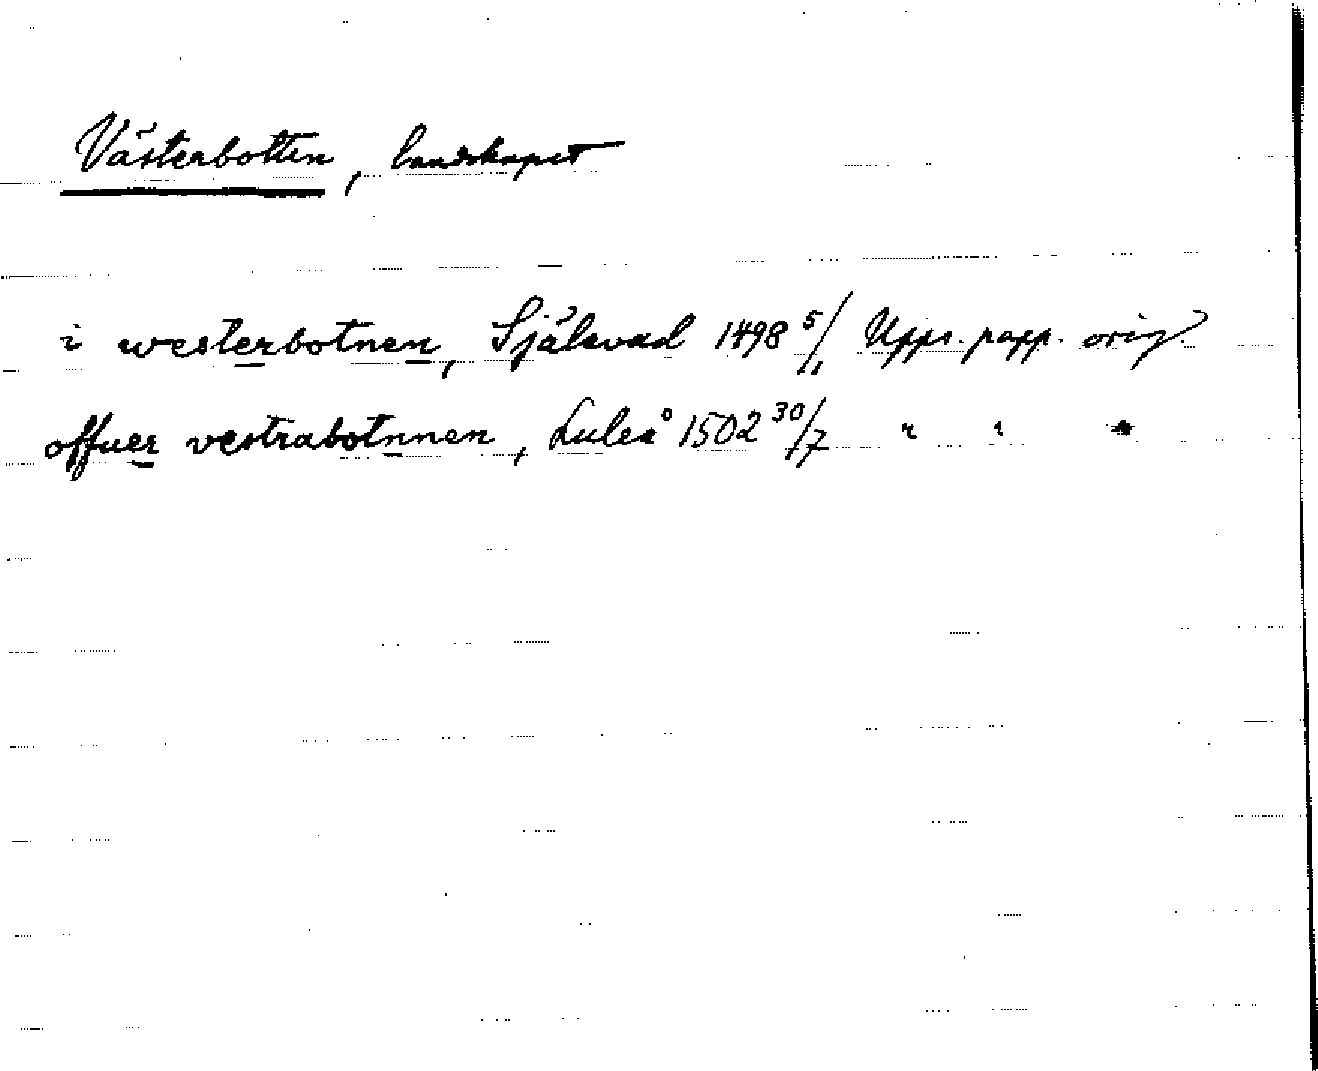 Västerbotten, landskapet
i westerbotnen, Själevad 1498 5/11 Upps. papp. orig.
offuer vestrabotnnen, Luleå 1502 30/7 " " "